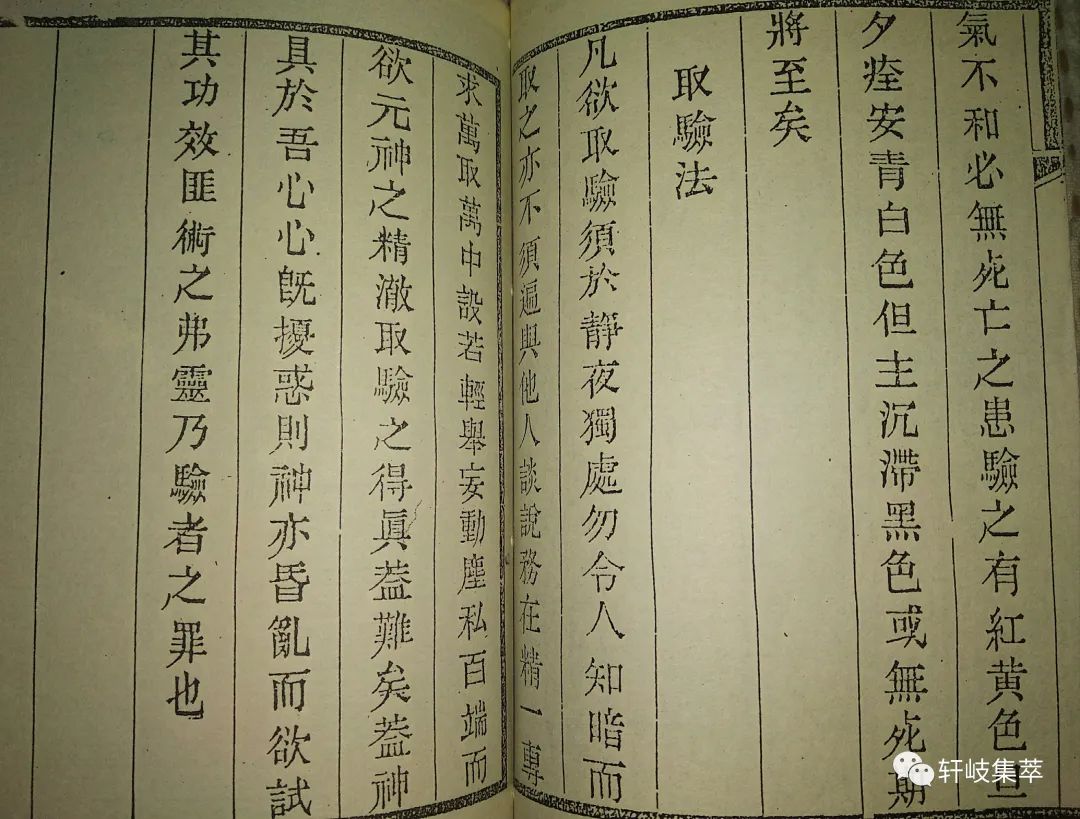 氣不和必無死亡之患驗之有紅黃色旦
夕痊安青白色但主沉滯黑色或無死期
將至矣
取驗法
凡欲取驗須於靜夜獨處勿令人知暗而
取之亦不須遍與他人談說務在精一專
求萬取萬中設若輕舉妄動塵私百端而
欲元神之精澈取驗之得眞葢難矣葢神
具於吾心心旣擾惑則神亦昏亂而欲試
其功效匪術之弗靈乃驗者之罪也
轩岐集萃